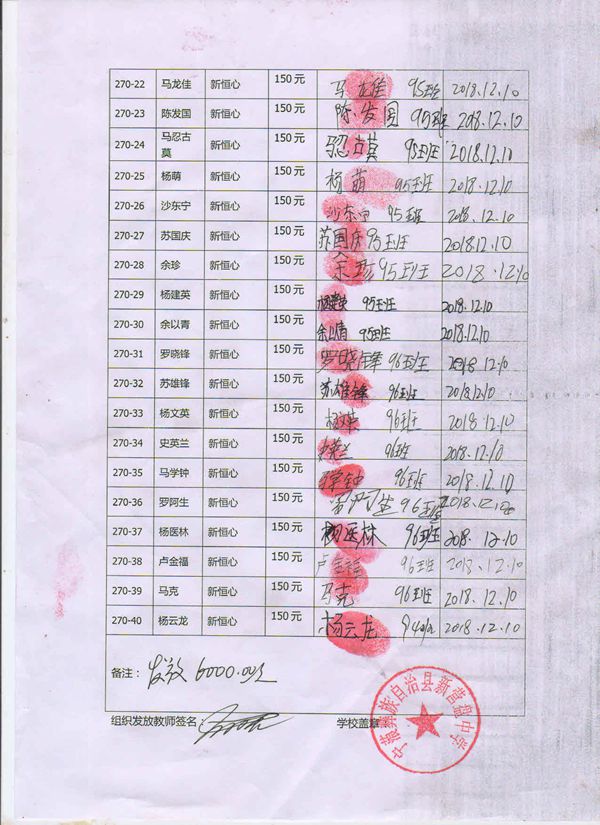 270-22 马龙佳 新恒心 150元 马龙佳 95班 2018.12.10
270-23 陈发国 新恒心 150元 陈发国 95班 2018.12.10
270-24 马忍古莫 新恒心 150元 马忍古莫 95班 2018.12.10
270-25 杨萌 新恒心 150元 杨萌 95班 2018.12.10
270-26 沙东宁 新恒心 150元 沙东宁 95班 2018.12.10
270-27 苏国庆 新恒心 150元 苏国庆 95班 2018.12.10
270-28 余珍 新恒心 150元 余珍 95班 2018.12.10
270-29 杨建英 新恒心 150元 杨建英 95班 2018.12.10
270-30 余以青 新恒心 150元 余以青 95班 2018.12.10
270-31 罗晓锋 新恒心 150元 罗晓锋 96班 2018.12.10
270-32 苏雄锋 新恒心 150元 苏雄锋 96班 2018.12.10
270-33 杨文英 新恒心 150元 杨文英 96班 2018.12.10
270-34 史英兰 新恒心 150元 史英兰 96班 2018.12.10
270-35 马学钟 新恒心 150元 马学钟 96班 2018.12.10
270-36 罗阿生 新恒心 150元 罗阿生 96班 2018.12.10
270-37 杨医林 新恒心 150元 杨医林 96班 2018.12.10
270-38 卢金福 新恒心 150元 卢金福 96班 2018.12.10
270-39 马克 新恒心 150元 马克 96班 2018.12.10
270-40 杨云龙 新恒心 150元 杨云龙 2018.12.10
备注：发放6000.00元
组织发放教师签名： 学校盖章
宁蒗彝族自治县新营盘中学